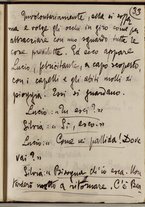 33
Involontariamente, essa si
ma e volge gli occhi in giro come per
abbracciare con uno sguardo tutte le
cose predilette. Ed ecco appare
Lucio, febbricitante, a capo scoperto
con i capelli e gli abiti molli di
pioggia. Essi si guardano.
Lucio: « Tu esci? »
Silvia: « Sì, esco. »
Lucio: « Come sei pallida! Dove
vai? »
Silvia: « Bisogna ch'io esca. Non
tarderò molto a ritornare. C'è